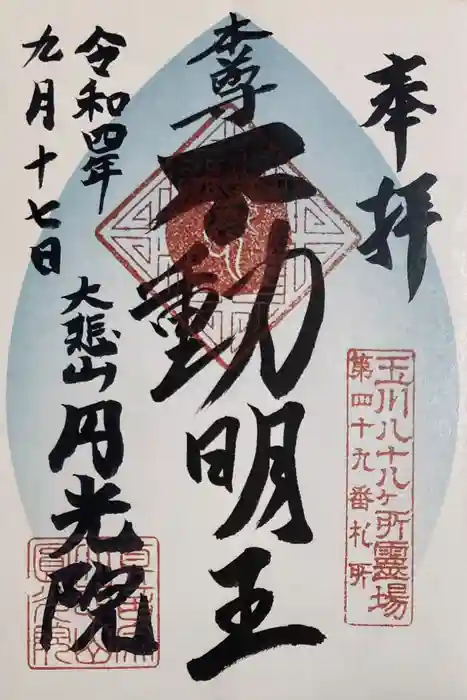 奉拝
玉川八十八ヶ所靈場
第四十九番札所
本尊
不動明王
令和四年
九月十七日
大悲山
円光院